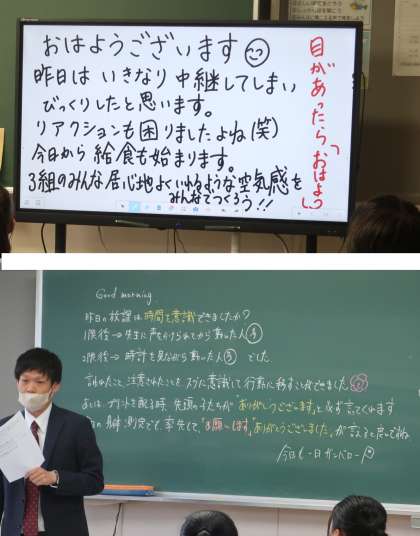 おはようございます
昨日は いきなり 中継してしまい
びっくりしたと思います。
リアクションも困りましたよね(笑)
今日から 給食も始まります。
3組のみんな居心地よくいれるような空気感を
みんなでつくろう!!
目があったら「おはよう」
Good morning.
昨日の放課は時間を意識できましたか?
1限後→先生に声をかけられてから動いた人④
2限後→時計を見ながら動いた人⑤ でした。
言われたこと、注意されたことを スグに意識して行動に移すことができました
プリントを配る時、先頭の子たちが「ありがとうございます」と必ず言ってくれます
身体測定でも、率先して、「お願いします」「ありがとうございました」が言えると良いですね
今日も一日ガンバロー